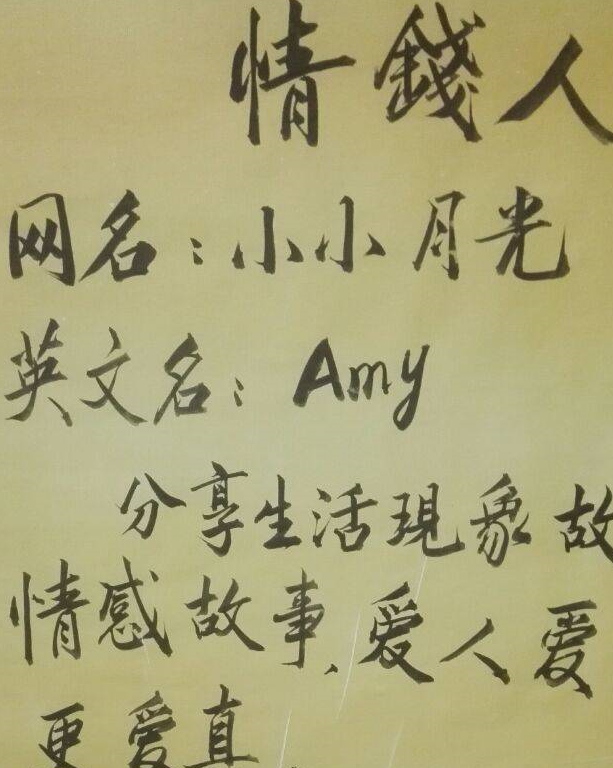 情錢人
网名：小小月光
英文名：Amy
分享生活現象故
情感故事、爱人爱
更爱真